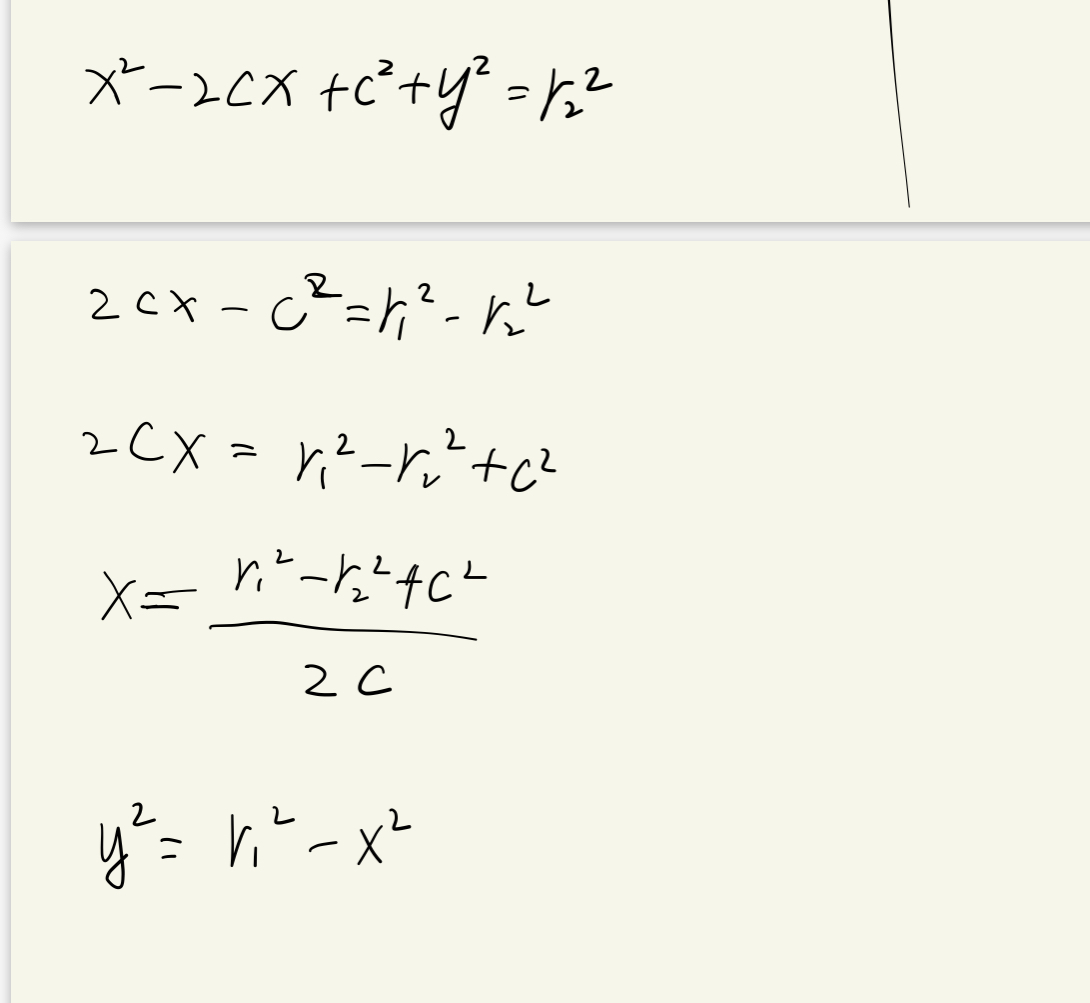 x² - 2cx + c² + y² = r₂²
2cx - c² = r₁² - r₂²
2cx = r₁² - r₂² + c²
x = (r₁² - r₂² + c²) / 2c
y² = r₁² - x²